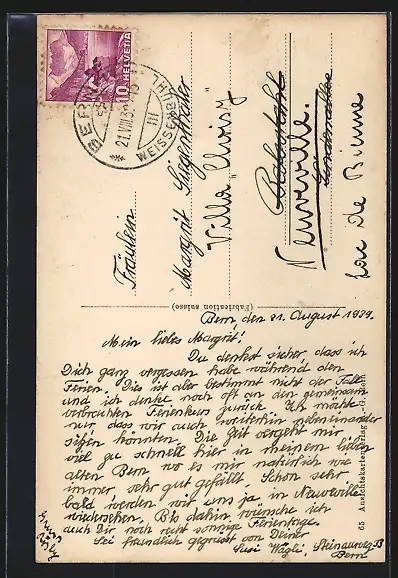 HELVETIA
10
BERN
21.VIII.39
WEISSENBÜHL
III
Fräulein
Margrit Siegenthaler
Villa "Choisy"
Neuveville.
Lac de Bienne
(Fabrication suisse)
Bern, den 21. August 1939.
Mein liebes Margrit!
Du denkst sicher, dass ich
Dich ganz vergessen habe während den
Ferien. Dies ist aber bestimmt nicht der Fall
und ich denke noch oft an den gemeinsam
verbrachten Ferienkurs zurück. Ich möchte
nur, dass wir auch weiterhin nebeneinander
sitzen könnten. Die Zeit vergeht mir
viel zu schnell hier in meinem lieben
alten Bern wo es mir natürlich wie
immer sehr gut gefällt. Schon sehr
bald werden wir uns ja in Neuveville
wiedersehen. Bis dahin wünsche ich
auch Dir noch recht sonnige Ferientage.
Sei freundlich gegrüsst von Deiner
Susi Wägli, Steinauweg 33
Bern
65 Ausichtskartenverlag